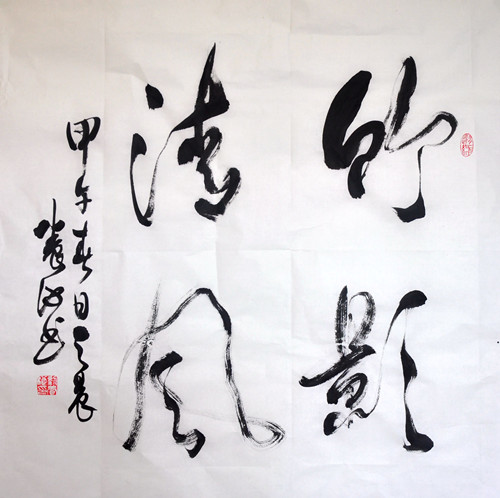 竹影
清风
甲午春日之晨
书